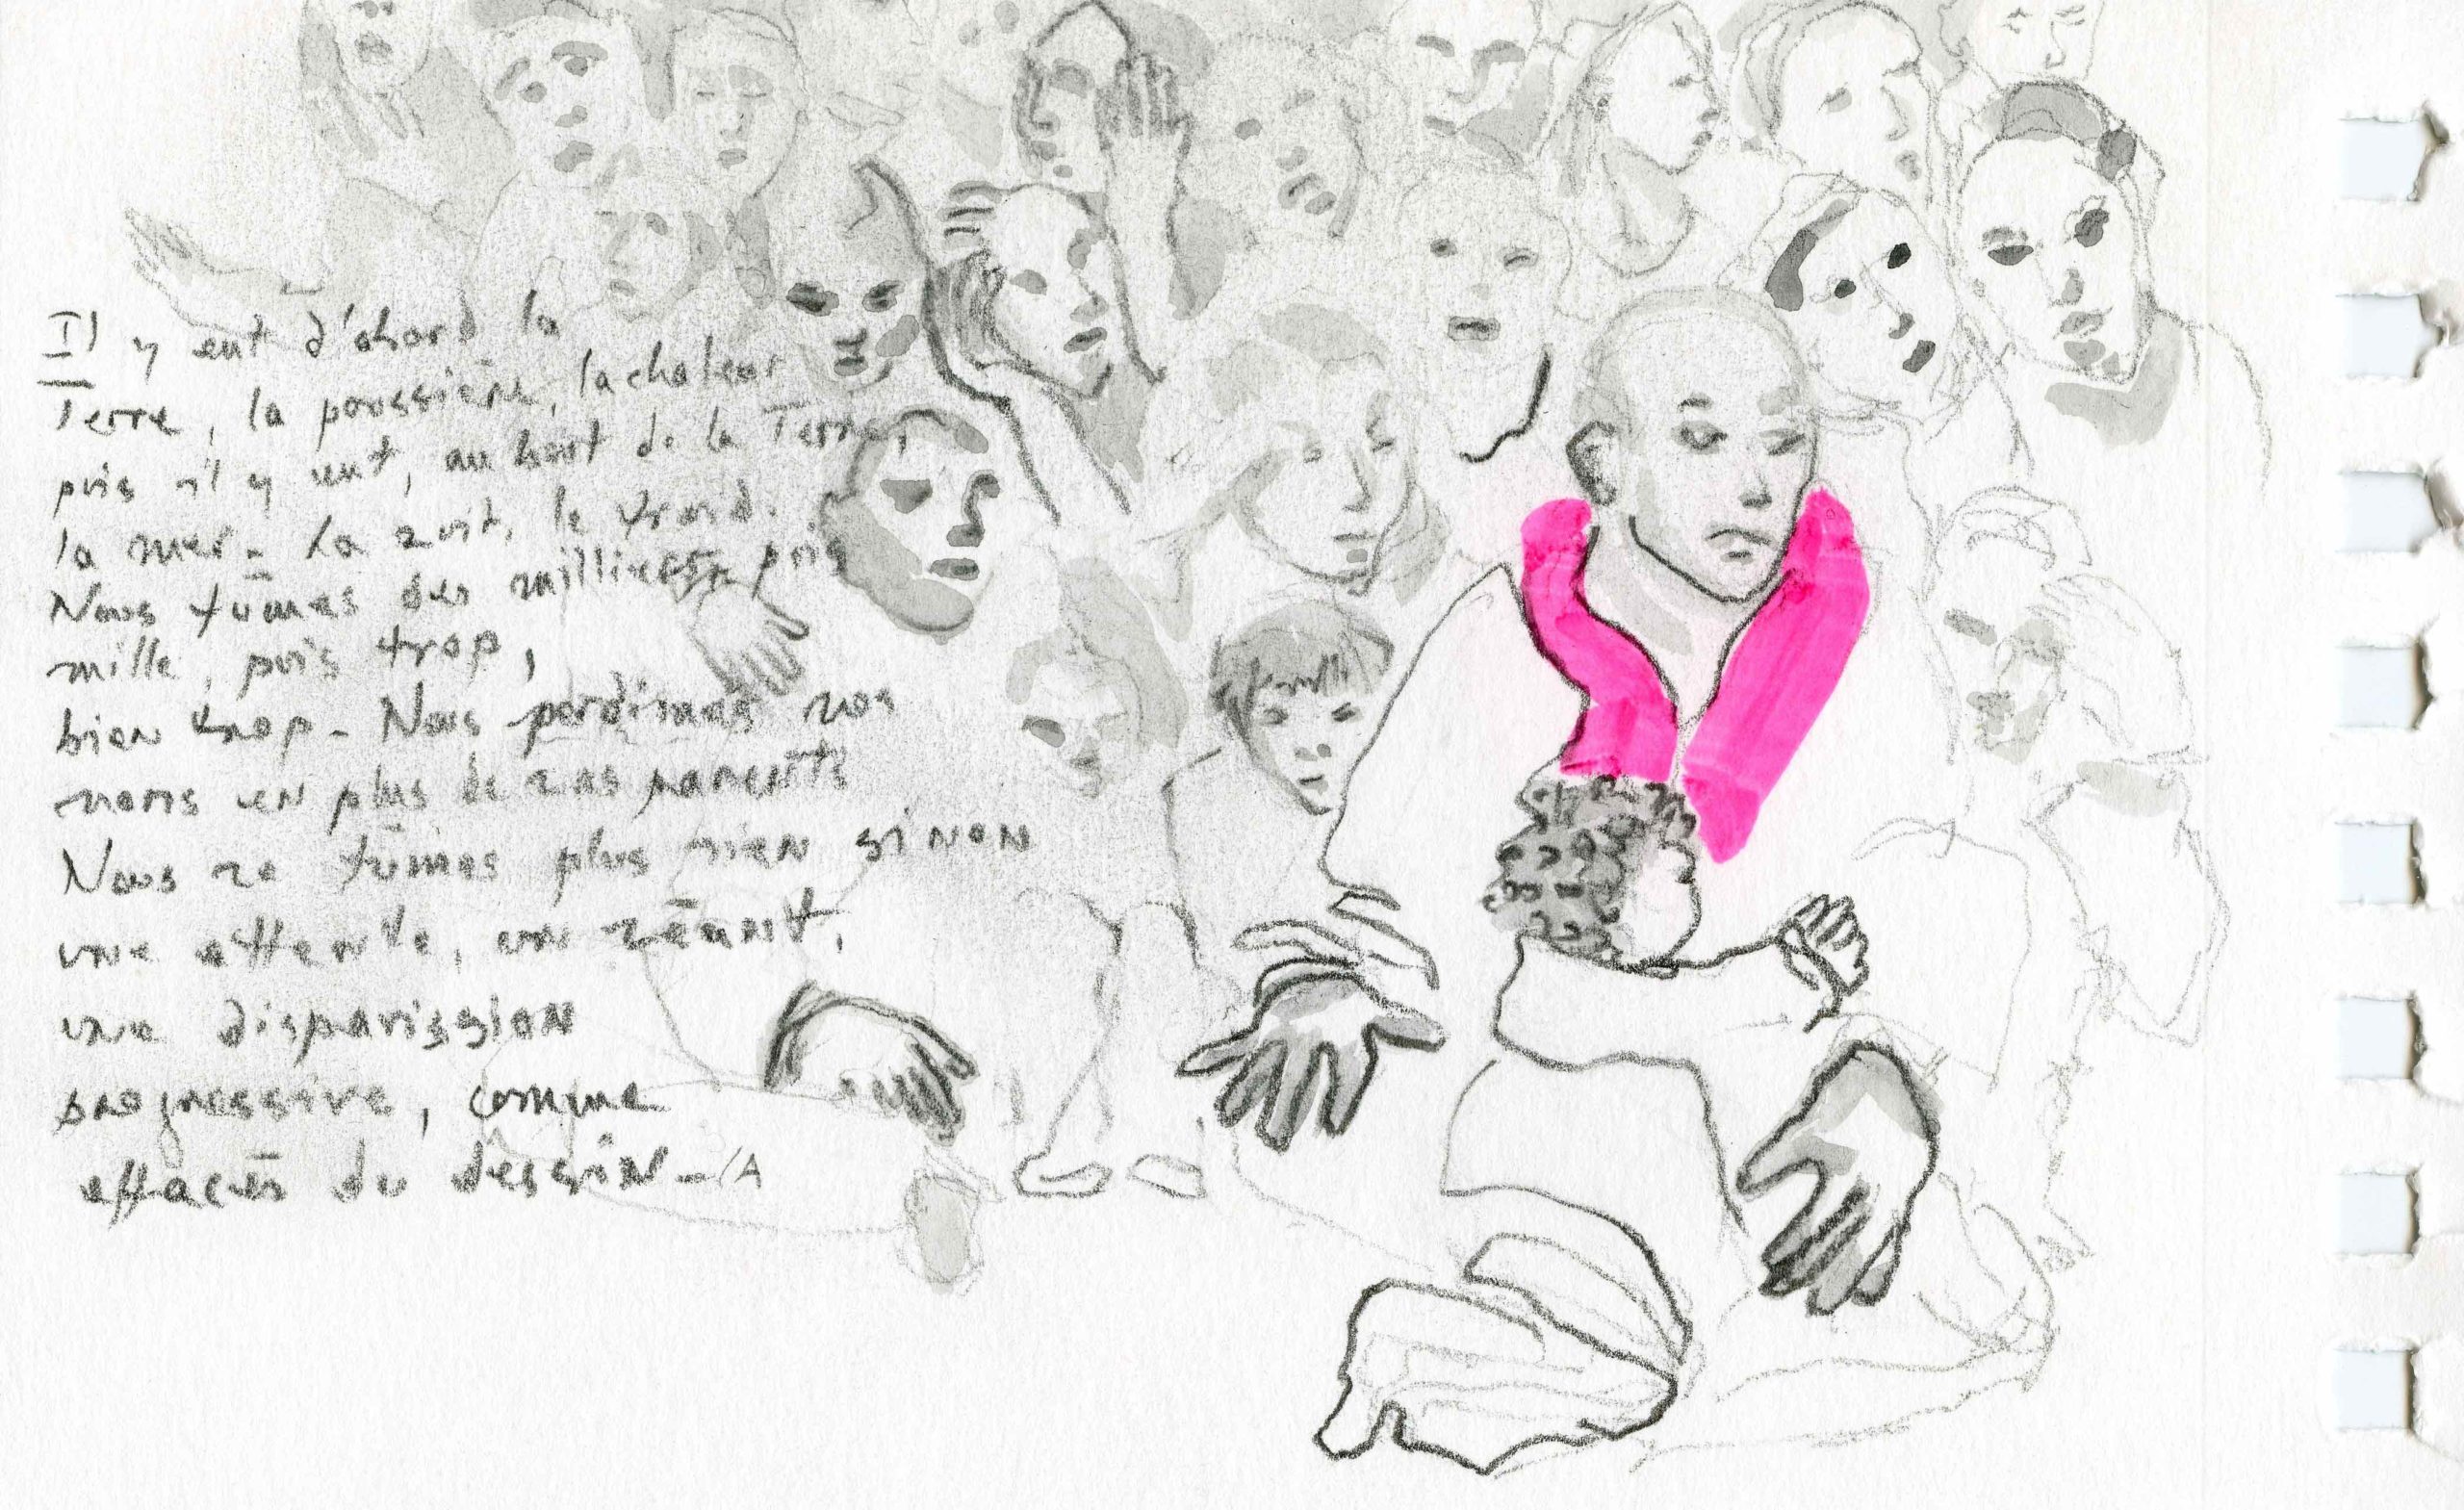 Il y eut d'abord la
Terre, la poussière, la chaleur
puis il y eut, au bout de la Terre,
la mer - La nuit, le froid.
Nous fûmes des milliers, puis
mille, puis trop,
bien trop - Nous perdîmes nos
noms en plus de nos parents
Nous ne fûmes plus rien sinon
une attente, un néant,
une disparission
progressive, comme
effacés du dessin - /A